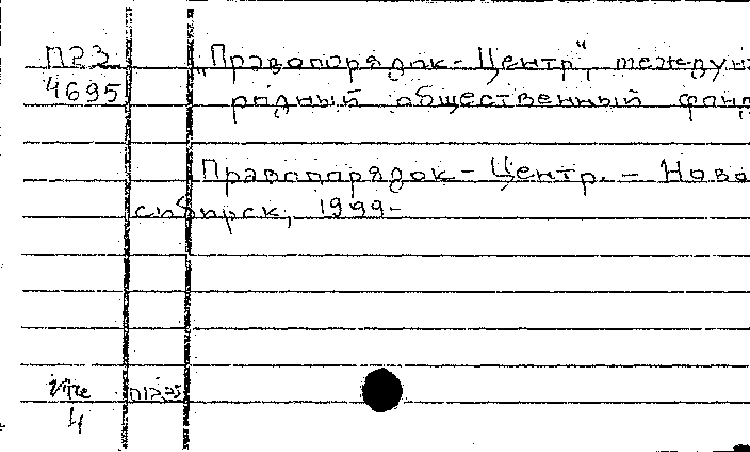 П23
4695
„Правопорядок-Центр“, междун
родный общественный фонд
Правопорядок-Центр. - Ново
сибирск, 1999-
4